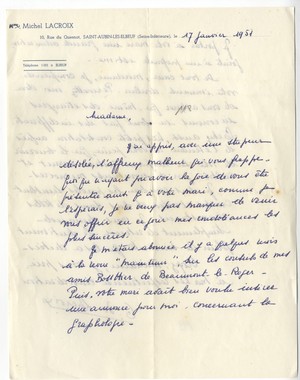 Mme Michel LACROIX
10, Rue du Quesnot, SAINT-AUBIN-LES-ELBEUF (Seine-Inférieure), le 17 janvier 1951
Téléphone ELBEUF
Madame,
J'ai appris, avec une stupeur
désolée, l'affreux malheur qui vous frappe.
Bien que n'ayant pu avoir la joie de vous être
présentée ainsi qu'à votre mari, comme je
l'espérais, je ne veux pas manquer de venir
vous offrir en ce jour mes condoléances les
plus sincères.
Je m'étais abonnée il y a quelques mois
à la revue "Maintenir" sur les conseils de mes
amis de Beaumont le Roger.
Puis, votre mari avait bien voulu insérer
une annonce pour moi concernant la
graphologie.